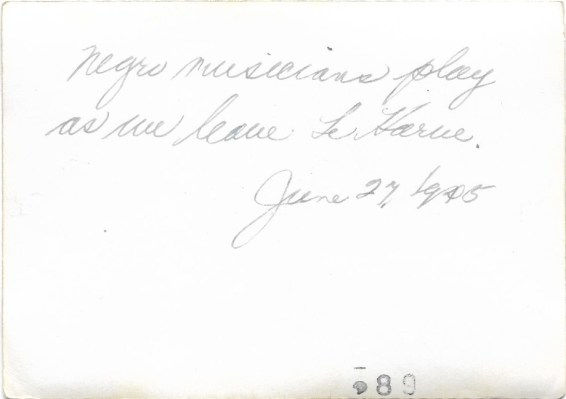 Negro musicians play
as we leave Le Harve.
June 27, 1945
89